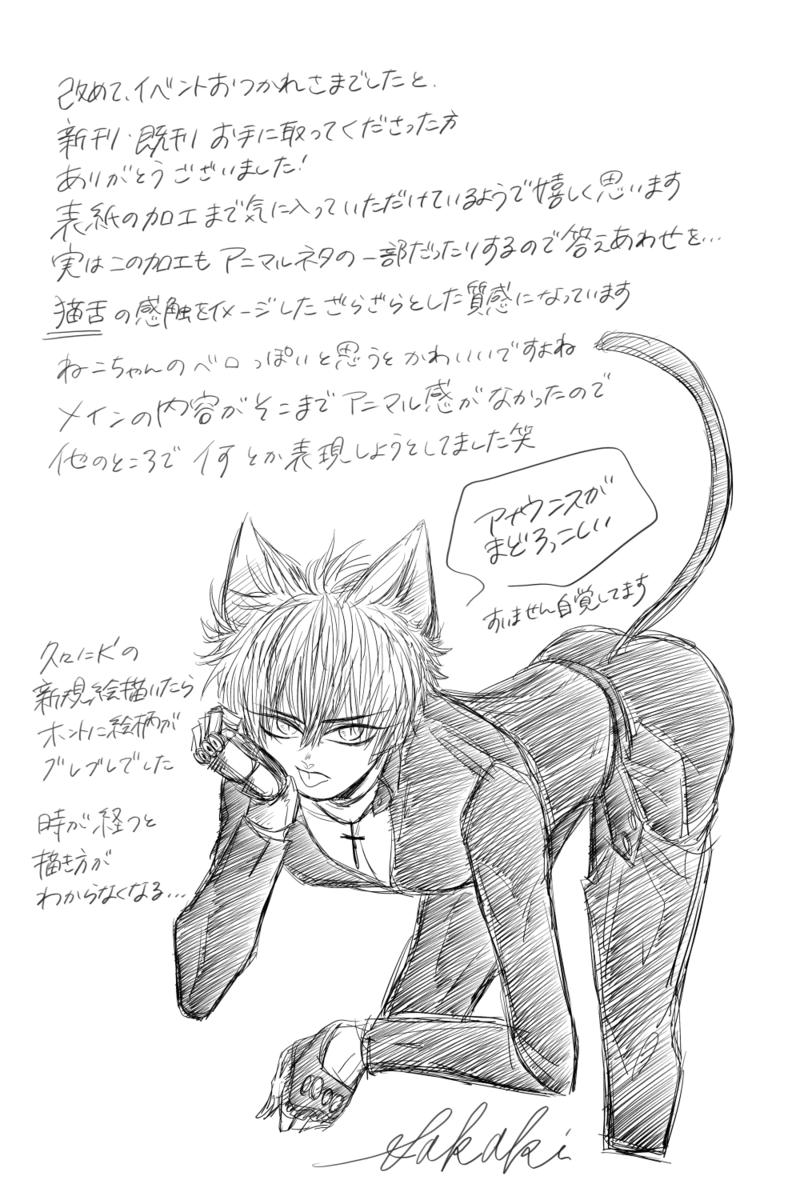 改めて、イベントおつかれさまでしたと、
新刊・既刊 お手に取ってくださった方
ありがとうございました!
表紙の加工まで気に入っていただけているようで嬉しく思います
実はこの加工も アニマルネタの一部だったりするので答えあわせを…
猫舌の感触をイメージした ざらざらとした質感になっています
ねこちゃんのベロっぽいと思うと かわいいですよね
メインの内容がそこまで アニマル感がなかったので
他のところで 何とか表現しようとしてました笑
アナウンスが
まどろっこしい
すいません自覚してます
久々にKの
新規絵描いたら
ホントに絵柄が
ブレブレでした
時が経つと
描き方が
わからなくなる…
Sakaki